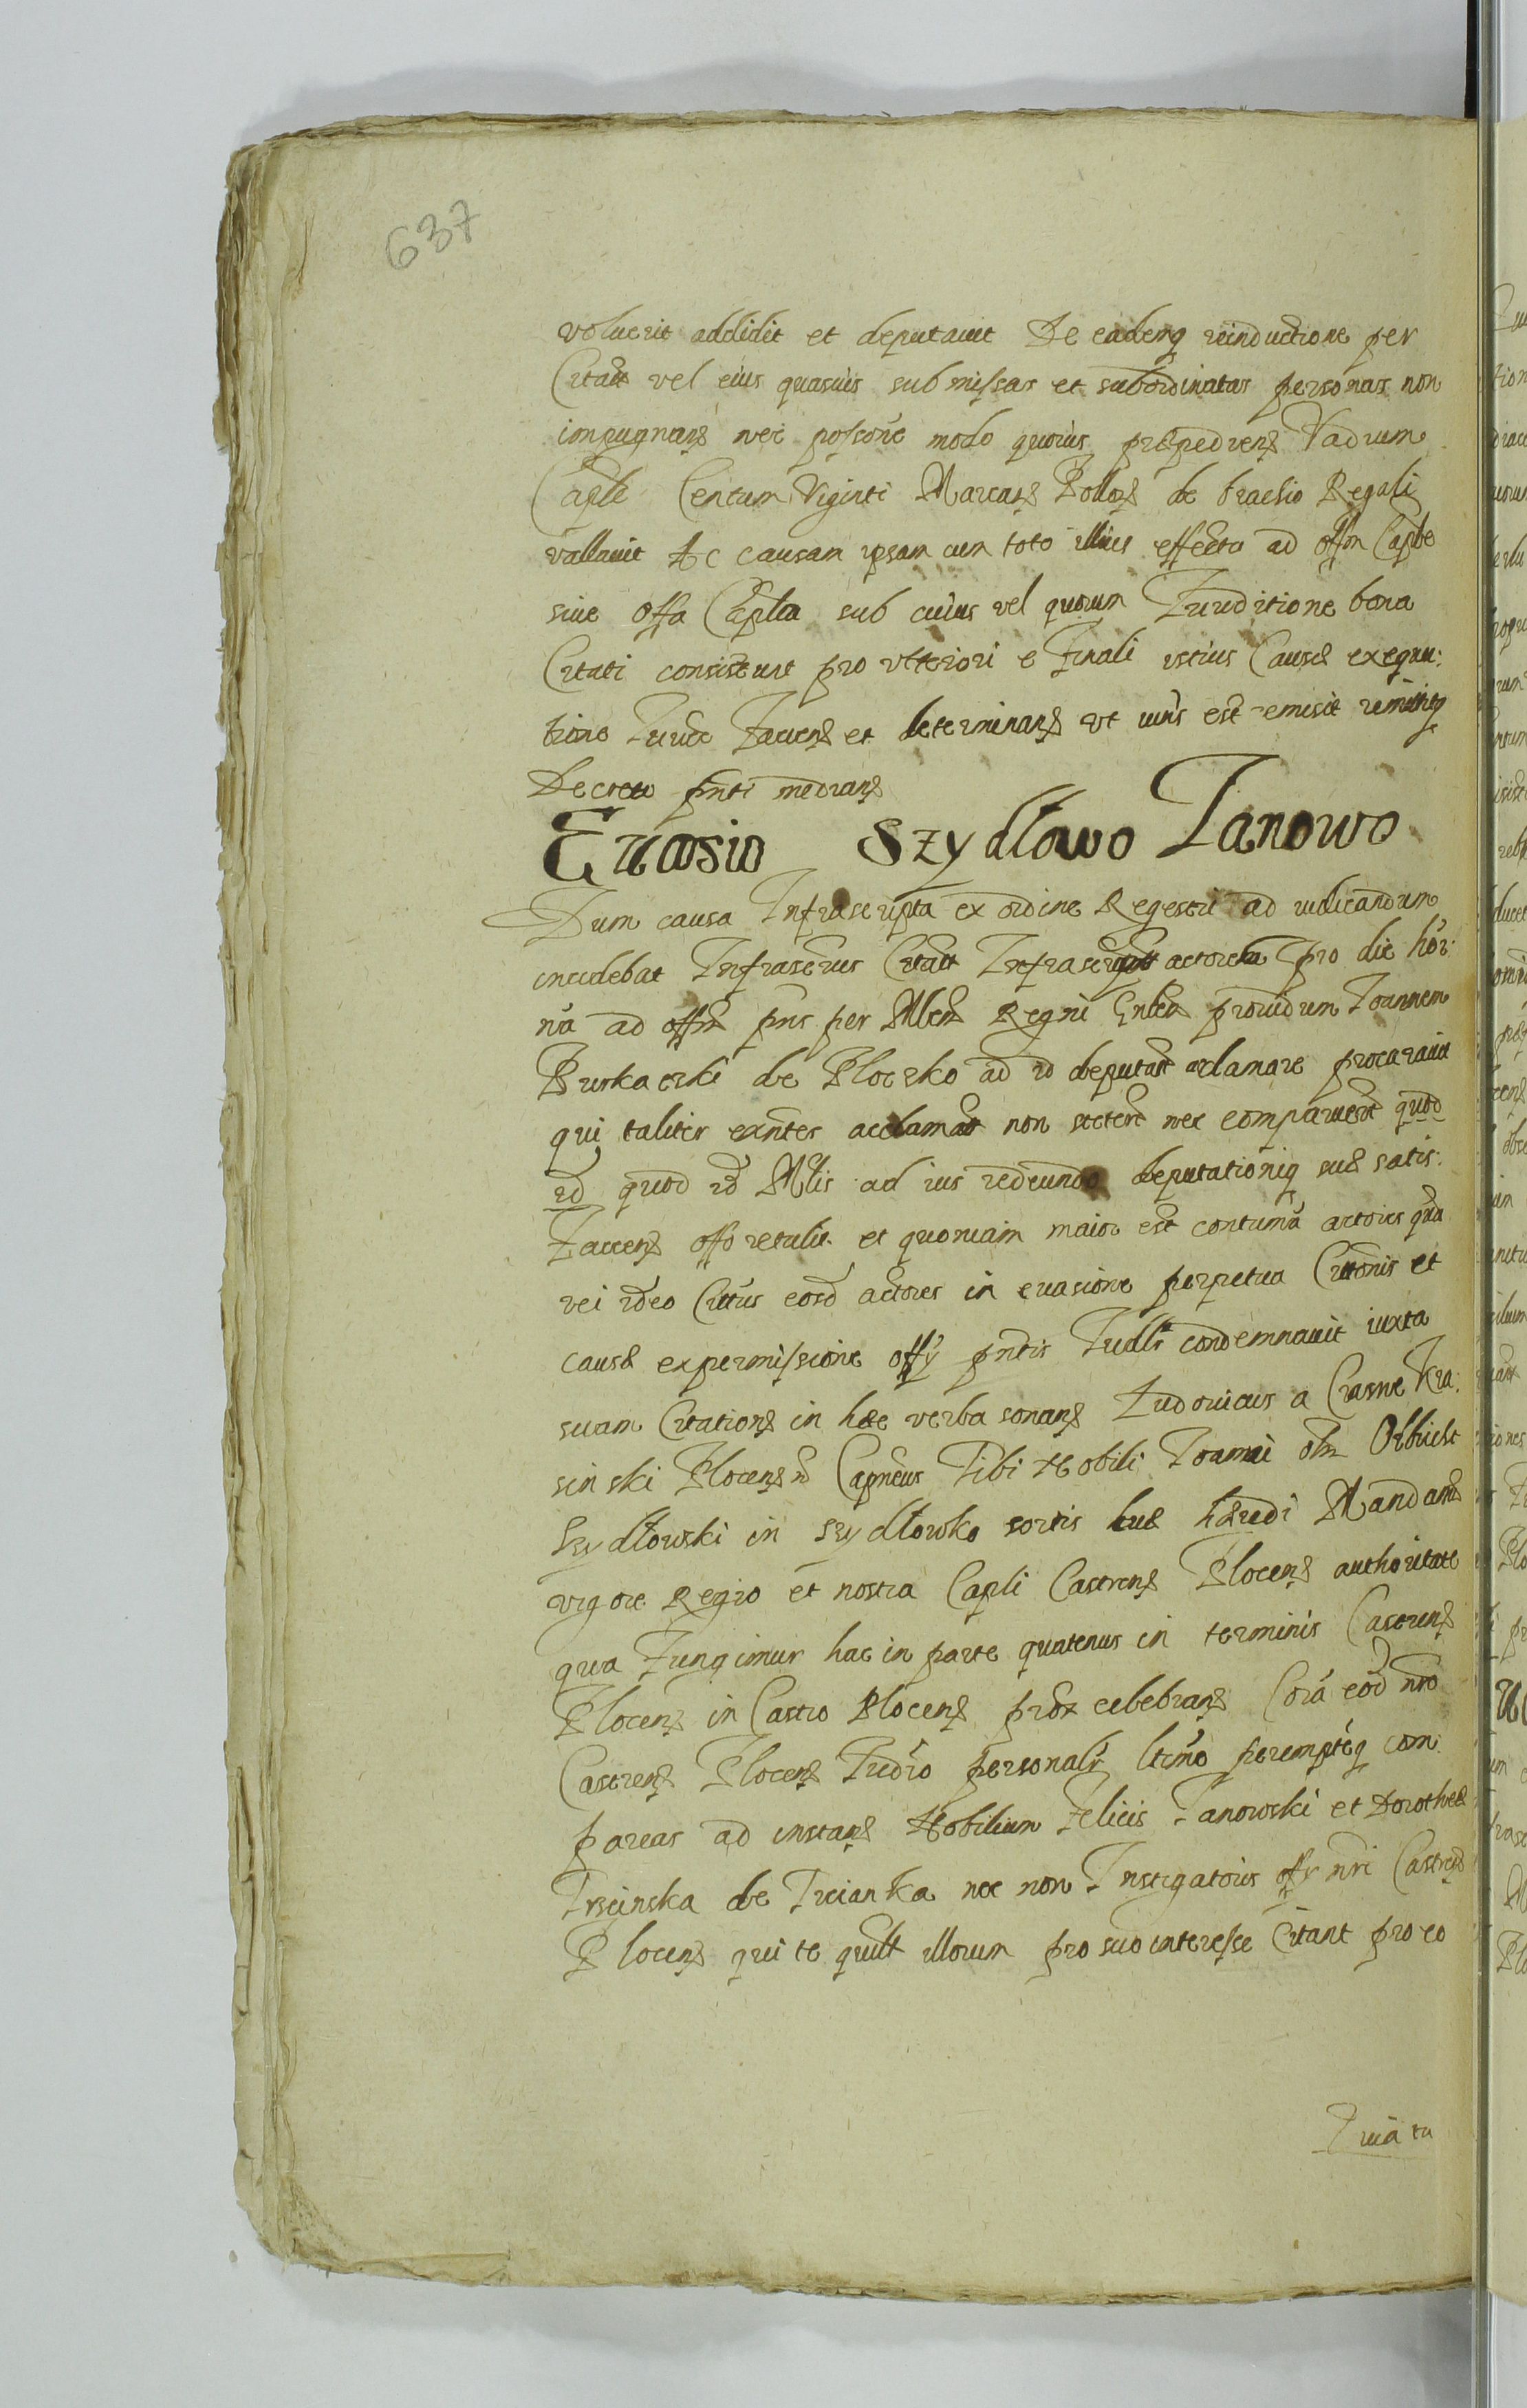 637
voluerit addidit et deputauit De eademq reinductione per
Citatt vel eius quasuis submissas et subordinatas personas non
impugnan nec possone modo quouis præpedien Vadium
Caple Centum Viginti Marcas Pollo de brachio Regali
vallauit Ac causam ipsam cum toto illius effectu ad offm Caple
siue offa Caplia sub cuius vel quorum Iurisditione bona
Citati consistunt pro vlteriori e finali istius Causæ exequu:
tione facien et determinan vt iuris est remisit remittitq
Decreto pnti median
Euasio Szydłowo Janowo
Dum causa Infrascripta ex ordine Regestri ad iudicandum
incidebat Infrascrius Citatt Infrascript actores pro die hor:
na ad offm pns per Regni prouidum Joannem
Ruskaczki de Ploczko ad id deputatt acclamare procurauit
qui taliter exntes acclamatt non steterut nec comparuerut quod
id quod id Mlis ad ius redeundo deputationiq suæ satis:
facien offo retulit et quoniam maior est contuma actoris qua
rei ideo Cittus eosd actores in euasione perpetua Cittonis et
causæ expermissione offy pntis Iudlr condemnauit iuxta
suam Citation in hæc verba sonan Ludouicus a Crasne Kra:
sinski Plocen Capneus Tibi Nobili olim Olbricht
Szydłowski in Szydłowko sortis tuæ hæredi Mandam
vigore Regio et nostra Capli Castren Plocen authoritate
qua fungimur hac in parte quatenus in terminis Castren
Plocen in Castro Plocen prox celebran Cora eod nro
Castren Plocen Iudio personalr ltimo perempteq com
pareas ad instan Nobilium Felicis Janowski et Dorotheæ
Trscinska de Trcianka nec non Instigatoris offy nri Castren
Plocen qui te quilt illorum pro suo interesse Citant pro eo
Quia tu